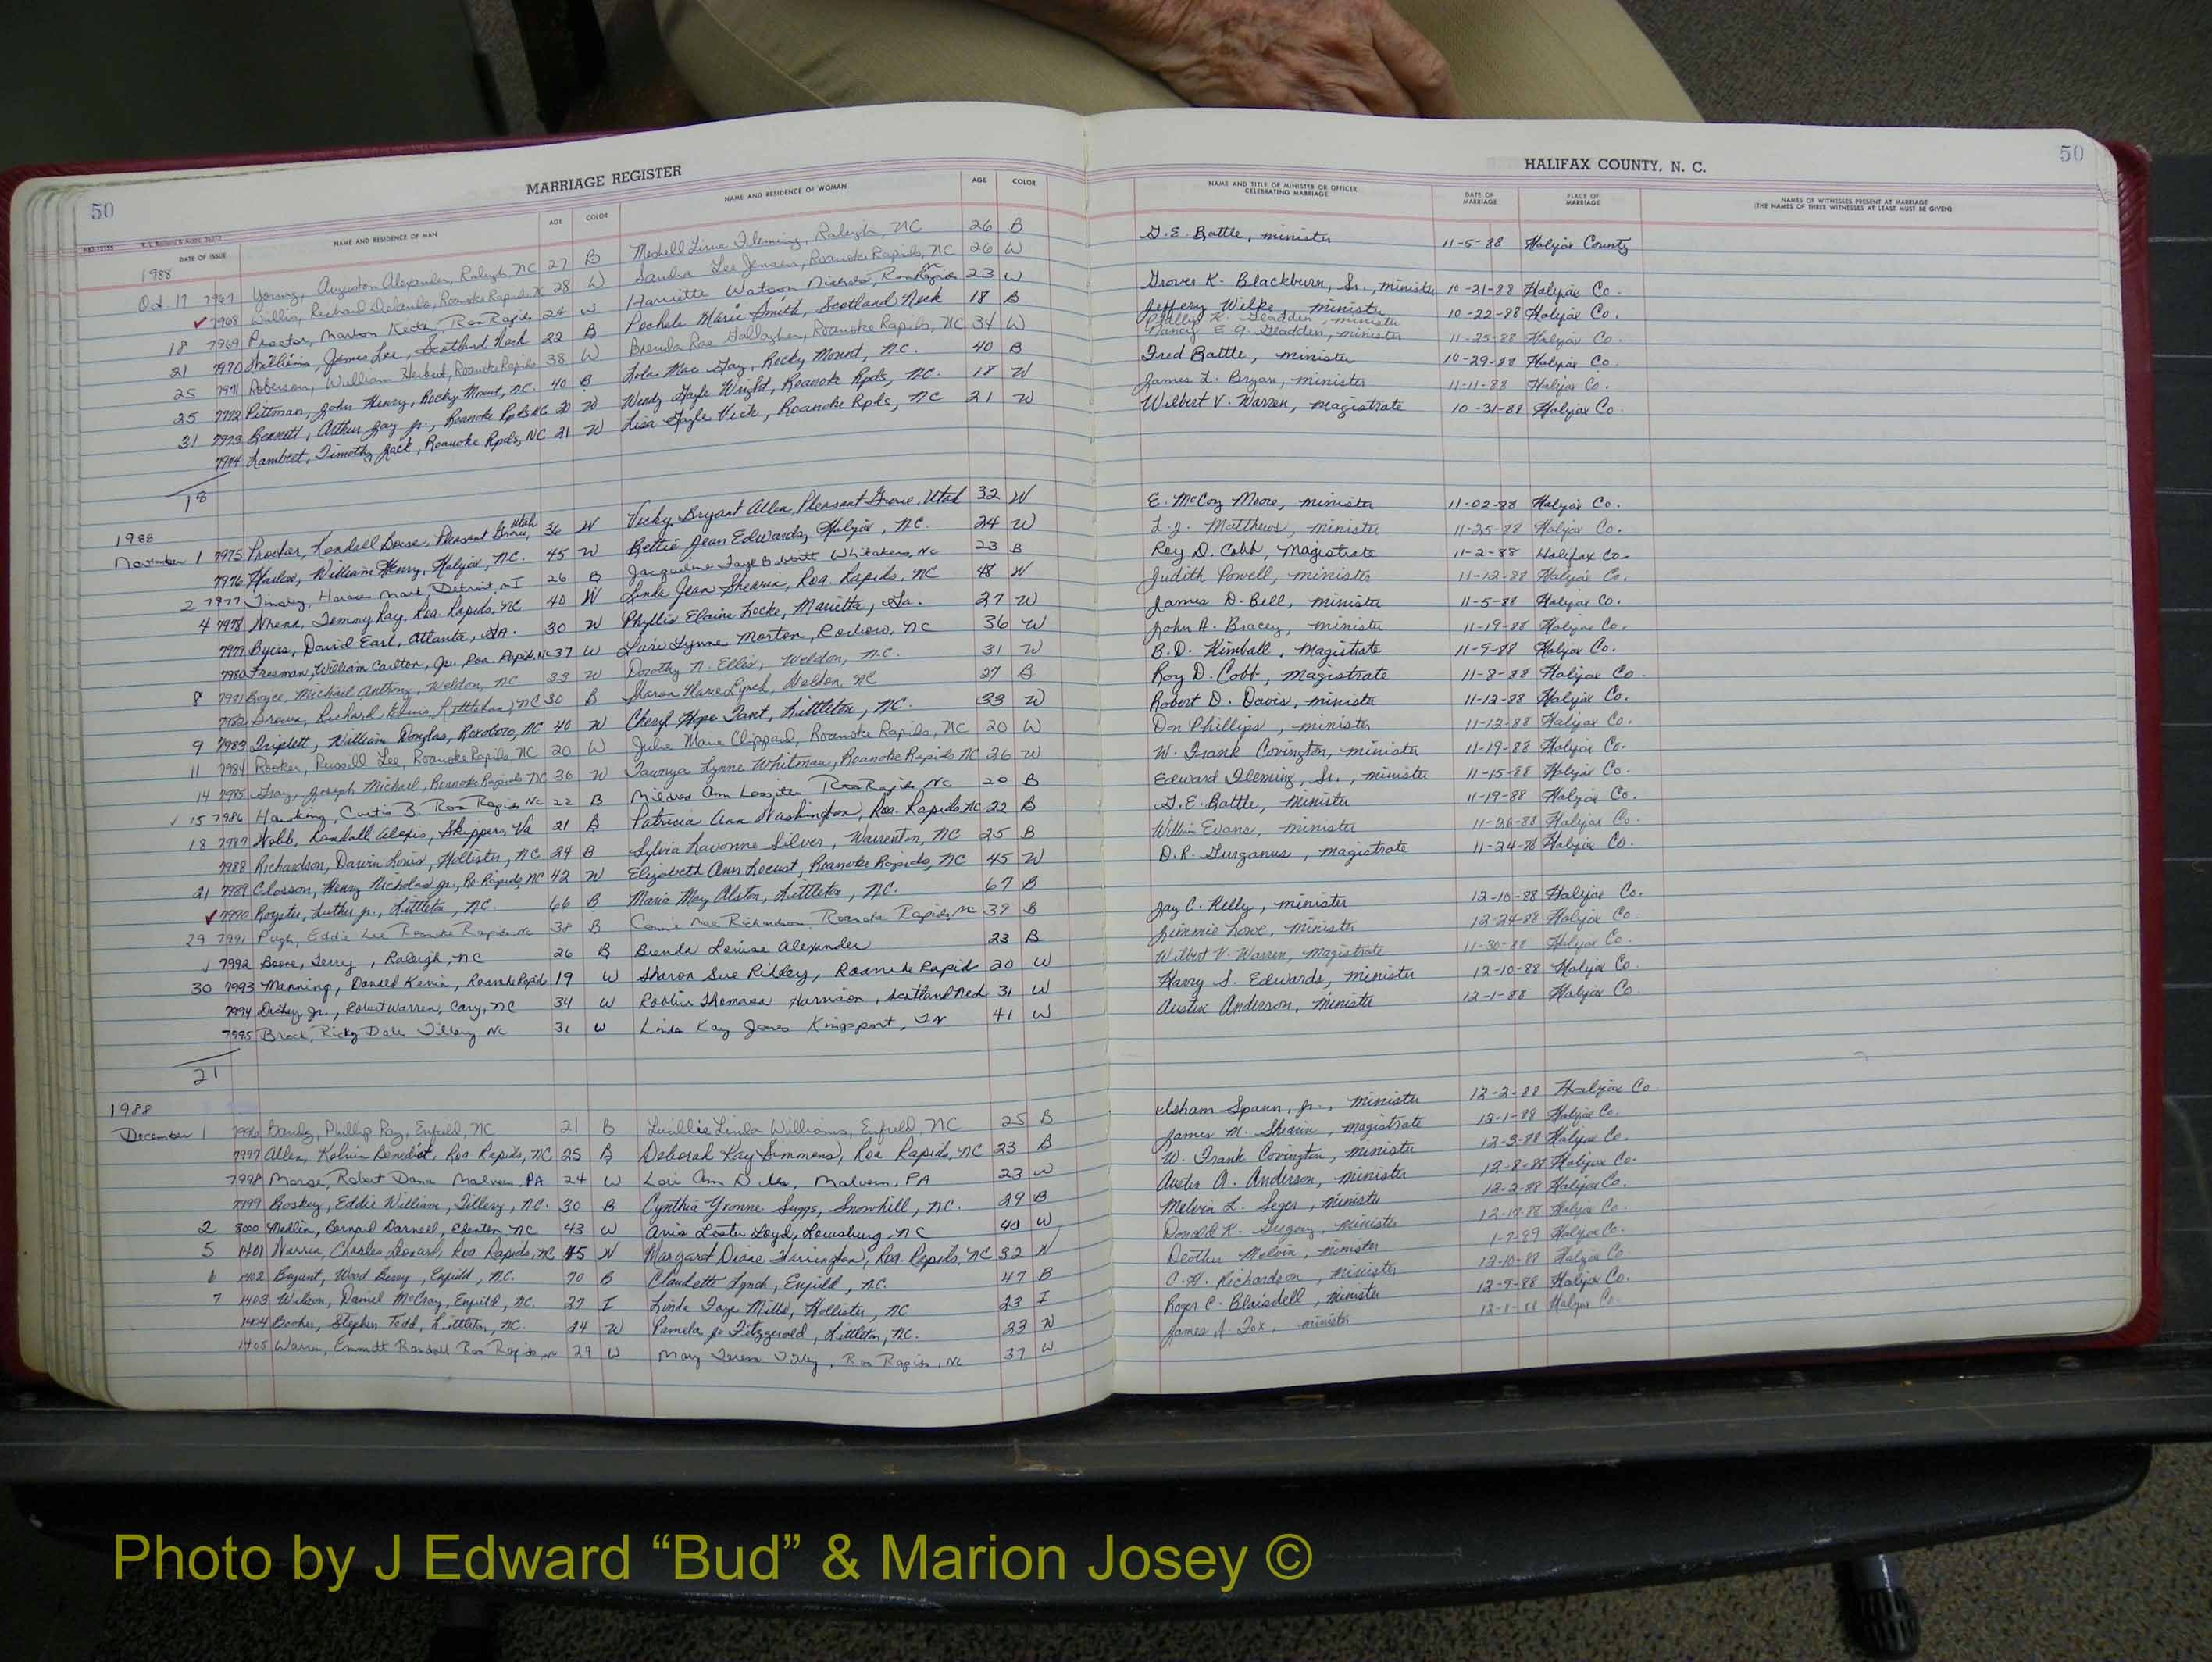 50
MARRIAGE REGISTER
HALIFAX COUNTY, N. C.
50
DATE OF ISSUE NAME AND RESIDENCE OF MAN AGE COLOR NAME AND RESIDENCE OF WOMAN AGE COLOR NAME AND TITLE OF MINISTER OR OFFICER CELEBRATING MARRIAGE DATE OF MARRIAGE PLACE OF MARRIAGE NAMES OF WITNESSES PRESENT AT MARRIAGE (THE NAMES OF THREE WITNESSES AT LEAST MUST BE GIVEN)
1988
Oct 17 7967 Young, Alexander, Raleigh, NC 27 B Meshell Fleming, Raleigh, NC 26 B G.E. Battle, minister 11-5-88 Halifax County
7968 Willis, Richard Orlando, Roanoke Rapids NC 28 W Sandra Lee Jensen, Roanoke Rapids, NC 26 W
18 7969 Proctor, Marlon Keith, Roa Rapids 24 W Harriette Watson Nichols, Roa Rapids NC 23 W Grover K. Blackburn, Sr., minister 10-21-88 Halifax Co.
21 7970 Williams, James Lee, Scotland Neck 22 B Pochele Marie Smith, Scotland Neck 18 B Jeffery Wilke, minister 10-22-88 Halifax Co.
25 7971 Roberson, William Herbert, Roanoke Rapids 38 W Brenda Rae Gallagher, Roanoke Rapids, NC 34 W Phillip K. Gladden, minister Nancy E. G. Gladden, minister 11-25-88 Halifax Co.
25 7972 Pittman, John Henry, Rocky Mount, NC. 40 B Lola Mae Gay, Rocky Mount, N.C. 40 B Fred Battle, minister 10-29-88 Halifax Co.
31 7973 Bennett, Arthur Ray Jr., Roanoke Rpds NC 20 W Wendy Gayle Wright, Roanoke Rpds, NC. 18 W James L. Bryan, minister 11-11-88 Halifax Co.
7974 Lambert, Timothy Jack, Roanoke Rpds, NC 21 W Lisa Gayle Vick, Roanoke Rpds, NC 21 W Wilbert V. Warren, magistrate 10-31-88 Halifax Co.
18
1988
November 1 7975 Proctor, Kendall Boise, Pleasant Grove, Utah 36 W Vicky Bryant Allen, Pleasant Grove, Utah 32 W E. McCoy Moore, minister 11-02-88 Halifax Co.
7976 Harlow, William Henry, Halifax, NC. 45 W Bettie Jean Edwards, Halifax, NC. 24 W L.J. Matthews, minister 11-25-88 Halifax Co.
2 7977 Horace Mark, Detroit, MI 26 B Jacqueline Faye Babbitt Whitakers, NC 23 B Roy D. Cobb, Magistrate 11-2-88 Halifax Co.
4 7978 Wrenn, Tommy Ray, Roa. Rapids, NC 40 W Linda Jean Shearin, Roa. Rapids, NC 48 W Judith Powell, minister 11-12-88 Halifax Co.
7979 Byers, David Earl, Atlanta, GA. 30 W Phyllis Elaine Locke, Marietta, Ga. 27 W James D. Bell, minister 11-5-88 Halifax Co.
7980 Freeman, William Carlton, Jr. Roa. Rapids, NC 37 W Lynne Morton, Roxboro, NC 36 W John A. Bracey, minister 11-19-88 Halifax Co.
8 7981 Boyce, Michael Anthony, Weldon, NC 33 W Dorothy N. Ellis, Weldon, N.C. 31 W B.D. Kimball, Magistrate 11-9-88 Halifax Co.
7982 Brown, Richard Littleton, NC 30 B Sharon Marie Lynch, Weldon, NC 27 B Roy D. Cobb, Magistrate 11-8-88 Halifax Co
9 7983 Triplett, William Douglas, Roxboro, NC 40 W Cheryl Hope Tant, Littleton, NC. 33 W Robert D. Davis, minister 11-12-88 Halifax Co.
11 7984 Rooker, Russell Lee, Roanoke Rapids, NC 20 W Julie Marie Clippard, Roanoke Rapids, NC 20 W Don Phillips, minister 11-12-88 Halifax Co.
14 7985 Gray, Joseph Michael, Roanoke Rapids NC 36 W Tawnya Lynne Whitman, Roanoke Rapids NC 26 W W. Frank Covington, minister 11-19-88 Halifax Co.
15 7986 Hawkins, Curtis B. Roa Rapids NC 22 B Mildred Ann Lassiter Roa Rapids, NC 20 B Edward Fleming, Sr., minister 11-15-88 Halifax Co.
18 7987 Webb, Randall Alexis, Skippers, Va 21 B Patricia Ann Washington, Roa. Rapids NC 22 B G.E. Battle, minister 11-19-88 Halifax Co.
7988 Richardson, Darwin Louis, Hollister, NC 24 B Sylvia Lavonne Silver, Warrenton, NC 25 B William Evans, minister 11-26-88 Halifax Co.
21 7989 Closson, Henry Nicholas Jr., Ro Rapids, NC 42 W Elizabeth Ann Locust, Roanoke Rapids, NC 45 W D.R. Gurganus, magistrate 11-24-88 Halifax Co.
7990 Royster, Luther Jr., Littleton, NC. 66 B Maria May Alston, Littleton, NC. 67 B
29 7991 Pugh, Eddie Lee Roanoke Rapids NC 38 B Connie Mae Richardson Roanoke Rapids, NC 39 B Jay C. Kelly, minister 12-10-88 Halifax Co.
7992 Boone, Terry, Raleigh, NC 26 B Brenda Louise Alexander 23 B Jimmie Lowe, minister 12-24-88 Halifax Co.
30 7993 Manning, Donald Kevin, Roanoke Rapids 19 W Sharon Sue Ridley, Roanoke Rapids 20 W Wilbert V. Warren, magistrate 11-30-88 Halifax Co.
7994 Dickey Jr., Robert Warren, Cary, NC 34 W Robbin Harrison, Scotland Neck 31 W Harry S. Edwards, minister 12-10-88 Halifax Co
7995 Brock, Ricky Dale Tillery NC 31 W Linda Kay Jones Kingsport, TN 41 W Austin Anderson, minister 12-1-88 Halifax Co.
21
1988
December 1 7996 Bandy, Phillip Ray, Enfield, NC 21 B Lucillie Linda Williams, Enfield, NC 25 B Isham Spann, Jr., minister 12-2-88 Halifax Co
7997 Allen, Kelvin Benedict, Roa Rapids, NC 25 B Deborah Kay Simmons, Roa Rapids, NC 23 B James M. Shearin, magistrate 12-1-88 Halifax Co.
7998 Morse, Robert Dana Malvern, PA 24 W Lori Ann Malvern, PA 23 W W. Frank Covington, minister 12-3-88 Halifax Co.
7999 Boskey, Eddie William, Tillery, NC. 30 B Cynthia Yvonne Suggs, Snowhill, NC. 29 B Austin A. Anderson, minister 12-8-88 Halifax Co.
2 8000 Medlin, Bernard Darnell, NC 43 W Avis Lester Loyd, Louisburg, NC 40 W Melvin L. minister 12-2-88 Halifax Co.
5 1401 Warren, Charles Leonard, Roa Rapids, NC 45 W Margaret Diane Harrington, Roa. Rapids, NC 32 W Donald K. minister 12-17-88 Halifax Co.
6 1402 Bryant, Wood Berry, Enfield, NC. 70 B Claudette Lynch, Enfield, NC. 47 B Melvin, minister 1-7-89 Halifax Co.
7 1403 Wilson, Daniel McCray, Enfield, NC. 27 I Linda Faye Mills, Hollister, NC 23 I C.H. Richardson, minister 12-10-88 Halifax Co
1404 Booker, Stephen Todd, Littleton, NC. 24 W Pamela Jo Fitzgerald, Littleton, NC. 23 W Roger C. Blaisdell, minister 12-9-88 Halifax Co.
1405 Warren, Emmitt Randall Roa Rapids, NC 29 W Mary Teresa Roa Rapids, NC 37 W James A Fox, minister Halifax Co.
Photo by J Edward “Bud” & Marion Josey ©